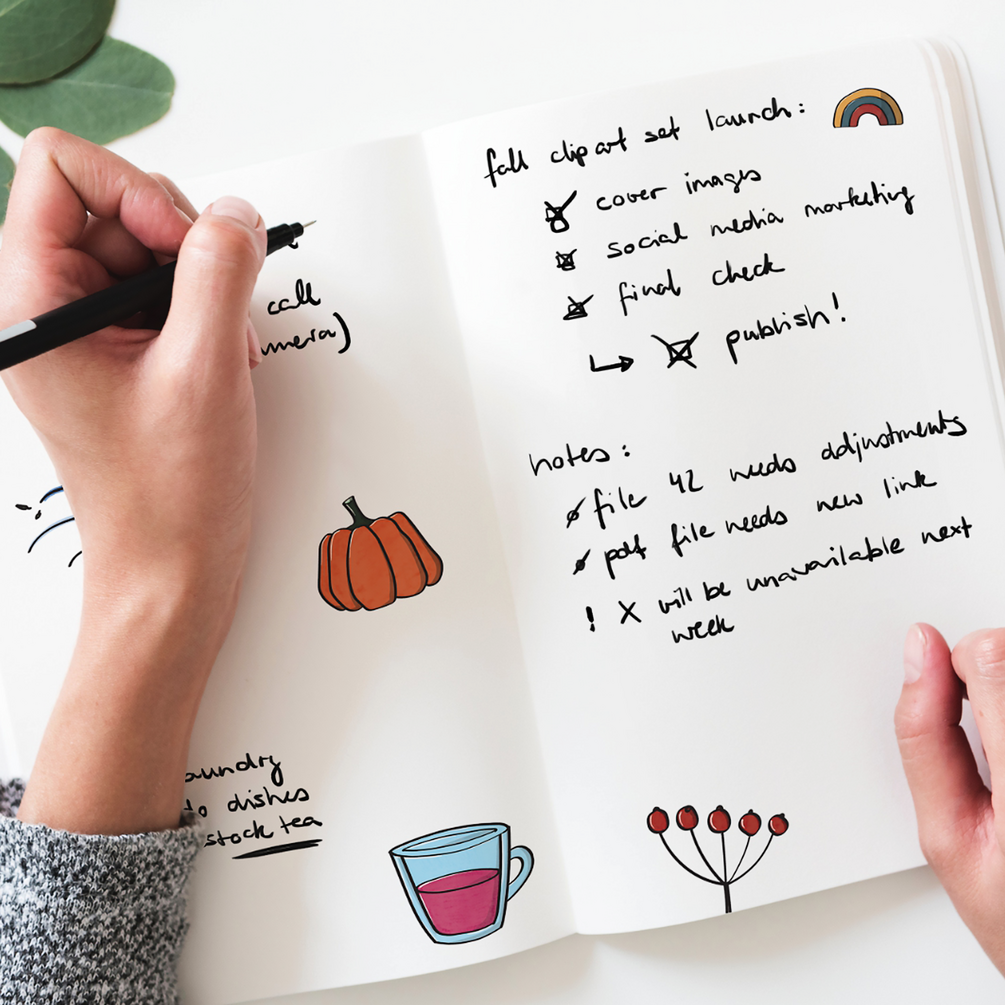 call
mera)
aundry
do dishes
stock tea
fall clip art set launch:
cover images
social media marketing
final check
publish!
notes:
file 42 needs adjustments
pdf file needs new link
! X will be unavailable next
week